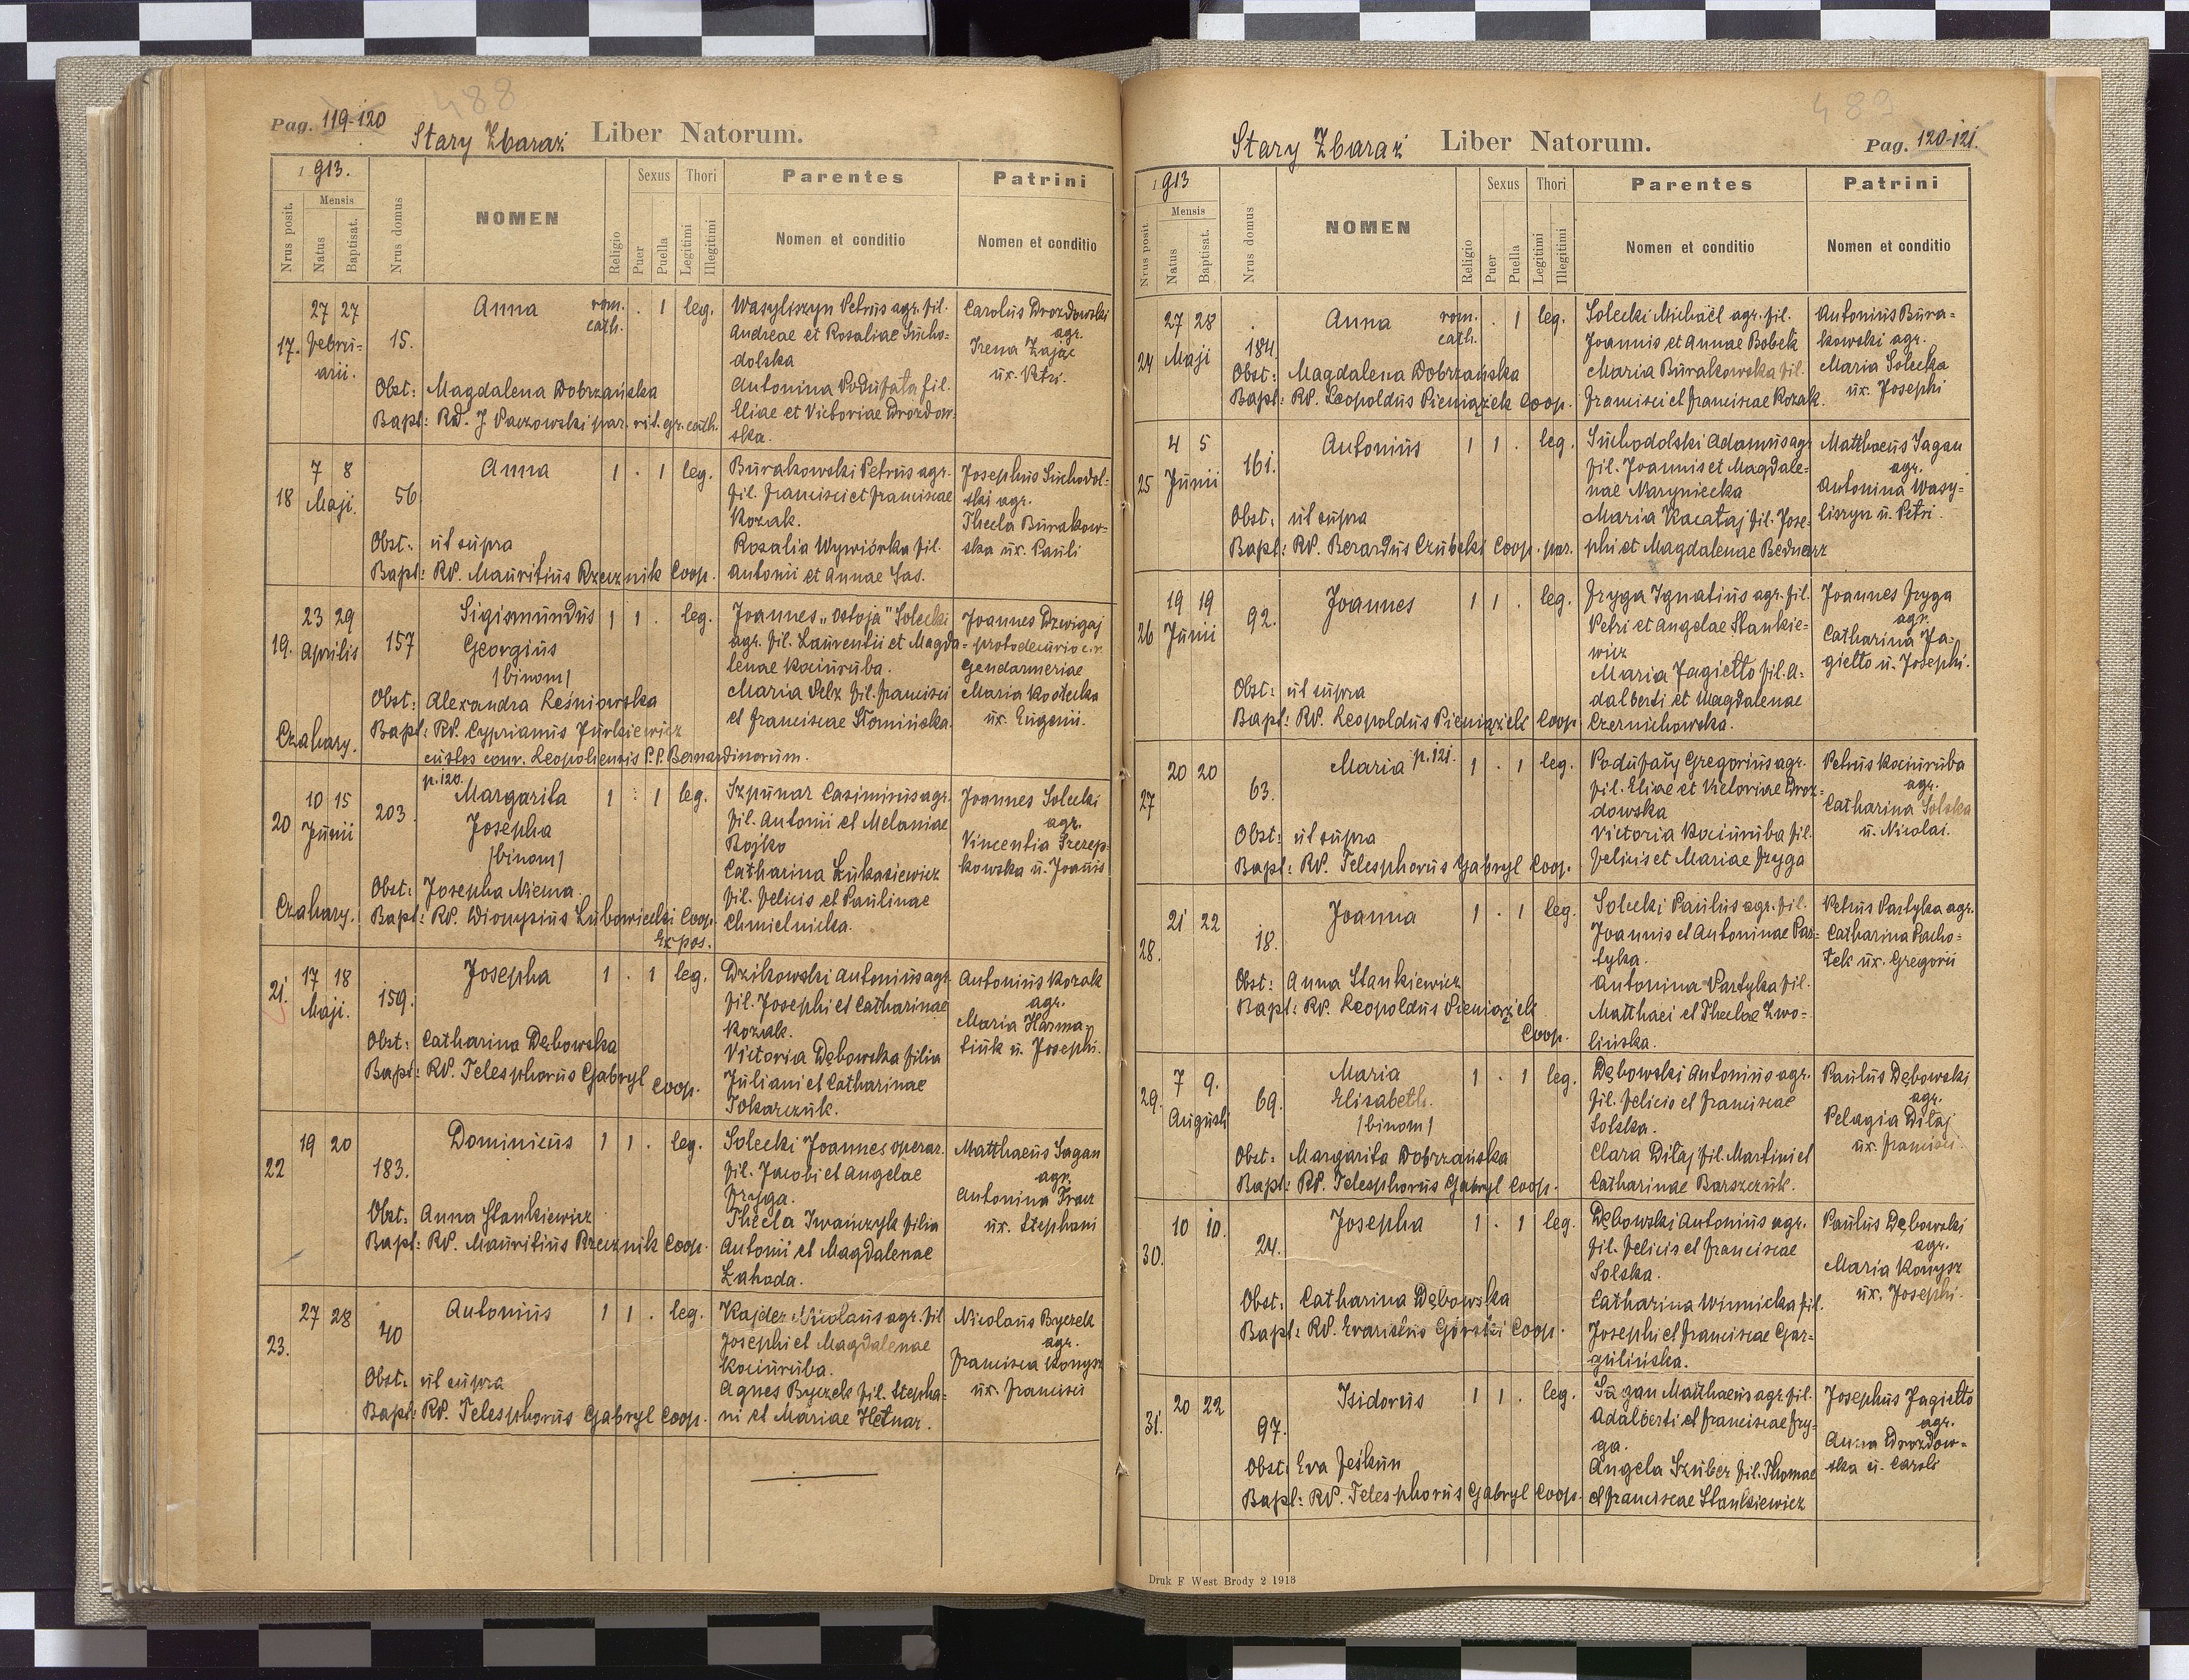 488
Pag. 119-120
Stary Zbaraż Liber Natorum.
1913.
Nrus posit.
Mensis
Natus
Baptisat.
Nrus domus
NOMEN
Religio
Sexus
Puer
Puella
Thori
Legitimi
Illegitimi
Parentes
Nomen et conditio
Patrini
Nomen et conditio
17. 27 27 Februarii. 15. Anna rom. cath. . 1 leg.
Wasyliszyn Petrus agr. fil.
Andreae et Rosaliae Sucho-
dolska
Antonina Podufała fil.
Eliae et Victoriae Drozdow-
ska.
Carolus Drozdowski
agr.
Irena Zając
ux. Petri.
Obst: Magdalena Dobrzańska
Bapt: RD. J. Paczowski par. rit. gr. cath.
18 7 8 Maji. 56 Anna 1 . 1 leg.
Burakowski Petrus agr.
fil. Francisci et Franciscae
Kozak.
Rosalia Wywiórka fil.
Antonii et Annae Sas.
Josephus Suchodol-
ski agr.
Thecla Burakow-
ska ux. Pauli
Obst: ut supra
Bapt: RP. Mauritius Rzeźnik Coop.
19. 23 29 Aprilis 157 Sigismundus 1 1 . leg.
Georgius
/binom/
Joannes "Ostoja" Solecki
agr. fil. Laurentii et Magda-
lenae Kociuruba.
Maria Pelz fil. Francisci
et Franciscae Słomińska.
Joannes Dzwigaj
protodecurio c.r.
Gendarmeriae
Maria Kostecka
ux. Eugenii.
Obst: Alexandra Leśniowska
Czahary.
Bapt: RP. Cyprianus Jurkiewicz
custos conv. Leopoliensis P.P. Bernardinorum.
p. 120.
20 10 15 Junii 203. Margarita 1 . 1 leg.
Josepha
/binom/
Szpunar Casimirus agr.
fil. Antonii et Melaniae
Bojko
Catharina Łukasiewicz
fil. Felicis et Paulinae
Chmielnicka.
Joannes Solecki
agr.
Vincentia Przep-
kowska u. Joannis
Obst: Josepha Niema.
Czahary.
Bapt: RP. Dionysius Lubowiecki Coop.
Expos.
21. 17 18 Maji. 159. Josepha 1 . 1 leg.
Dzikowski Antonius agr.
fil. Josephi et Catharinae
Kozak.
Victoria Dębowska filia
Juliani et Catharinae
Tokarczuk.
Antonius Kozak
agr.
Maria Harma-
tiuk u. Josephi.
Obst: Catharina Dębowska
Bapt: RP. Telesphorus Gabryl Coop.
22 19 20 183. Dominicus 1 1 . leg.
Solecki Joannes operar.
fil. Jacobi et Angelae
Fryga.
Thecla Iwańczyk filia
Antonii et Magdalenae
Zahoda.
Matthaeus Sagan
agr.
Antonina Franz
ux. Stephani
Obst: Anna Stankiewicz
Bapt: RP. Mauritius Rzeźnik Coop.
23. 27 28 40 Antonius 1 1 . leg.
Kajder Nicolaus agr. fil
Josephi et Magdalenae
Kociuruba.
Agnes Byczek fil. Stepha-
ni et Mariae Hetnar.
Nicolaus Byczek
agr.
Francisca Konysz
ux. Francisci
Obst: ut supra
Bapt: RP. Telesphorus Gabryl Coop.
489
Stary Zbaraż Liber Natorum.
Pag. 120-121.
1913
Nrus posit
Mensis
Natus
Baptisat.
Nrus domus
NOMEN
Religio
Sexus
Puer
Puella
Thori
Legitimi
Illegitimi
Parentes
Nomen et conditio
Patrini
Nomen et conditio
24 27 28 Maji 184. Anna rom. cath. . 1 leg.
Solecki Michaël agr. fil.
Joannis et Annae Bobek
Maria Burakowska fil.
Francisci et Franciscae Kozak.
Antonius Bura-
kowski agr.
Maria Solecka
ux. Josephi
Obst: Magdalena Dobrzańska
Bapt: RP. Leopoldus Pieniążek Coop.
25 4 5 Junii 161. Antonius 1 1 . leg.
Suchodolski Adamus agr
fil. Joannis et Magdale-
nae Naryniecka
Maria Kacałaj fil. Jose-
phi et Magdalenae Bednarz
Matthaeus Sagan
agr.
Antonina Wasy-
liszyn u. Petri.
Obst: ut supra
Bapt: RP. Berardus Czubski Coop. par.
26 19 19 Junii 92. Joannes 1 1 . leg.
Fryga Ignatius agr. fil.
Petri et Angelae Stankie-
wicz
Maria Jagiełło fil. A-
dalberti et Magdalenae
Czernichowska.
Joannes Fryga
agr.
Catharina Ja-
giełło u. Josephi.
Obst: ut supra
Bapt: RP. Leopoldus Pieniążek Coop
27 20 20 63. Maria p. 121. 1 . 1 leg.
Podufały Gregorius agr.
fil. Eliae et Victoriae Droz-
dowska
Victoria Kociuruba fil.
Felicis et Mariae Fryga
Petrus Kociuruba
agr.
Catharina Solska
u. Nicolai.
Obst: ut supra
Bapt: RP. Telesphorus Gabryl Coop.
28. 21 22 18. Joanna 1 . 1 leg.
Solecki Paulus agr. fil.
Joannis et Antoninae Par-
tyka.
Antonina Partyka fil.
Matthaei et Theclae Zwo-
lińska.
Petrus Partyka agr.
Catharina Pacho-
łek ux. Gregorii
Obst: Anna Stankiewicz
Bapt: RP. Leopoldus Pieniążek
Coop.
29. 7 9. Augusti 69. Maria 1 . 1 leg.
Elisabeth.
/binom/
Dębowski Antonius agr.
fil. Felicis et Franciscae
Solska.
Clara Diłaj fil. Martini et
Catharinae Barszczuk.
Paulus Dębowski
agr.
Pelagia Diłaj
ux. Francisci.
Obst: Margarita Dobrzańska
Bapt: RP. Telesphorus Gabryl Coop.
30. 10 10. 24. Josepha 1 . 1 leg.
Dębowski Antonius agr.
fil. Felicis et Franciscae
Solska.
Catharina Winnicka fil.
Josephi et Franciscae Gar-
gulińska.
Paulus Dębowski
agr.
Maria Konysz
ux. Josephi.
Obst: Catharina Dębowska
Bapt: RP. Evaristus Górski Coop.
31. 20 22 97. Isidorus 1 1 . leg.
Sagan Matthaeus agr. fil.
Adalberti et Franciscae Fry-
ga.
Angela Szuber fil. Thomae
et Franciscae Stankiewicz
Josephus Jagiełło
agr.
Anna Drozdow-
ska u. Caroli
Obst: Eva Feśkun
Bapt: RP. Telesphorus Gabryl Coop.
Druk F West Brody 2 1913